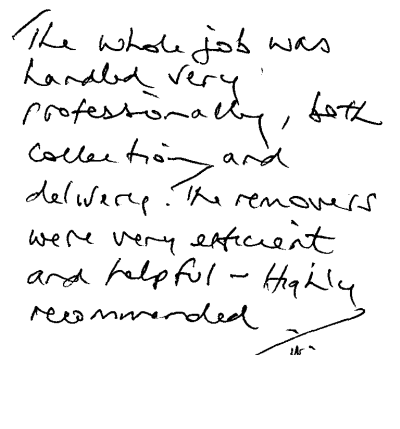 The whole job was
handled very
professionally, both
collection and
delivery. The removers
were very efficient
and helpful - Highly
recommended